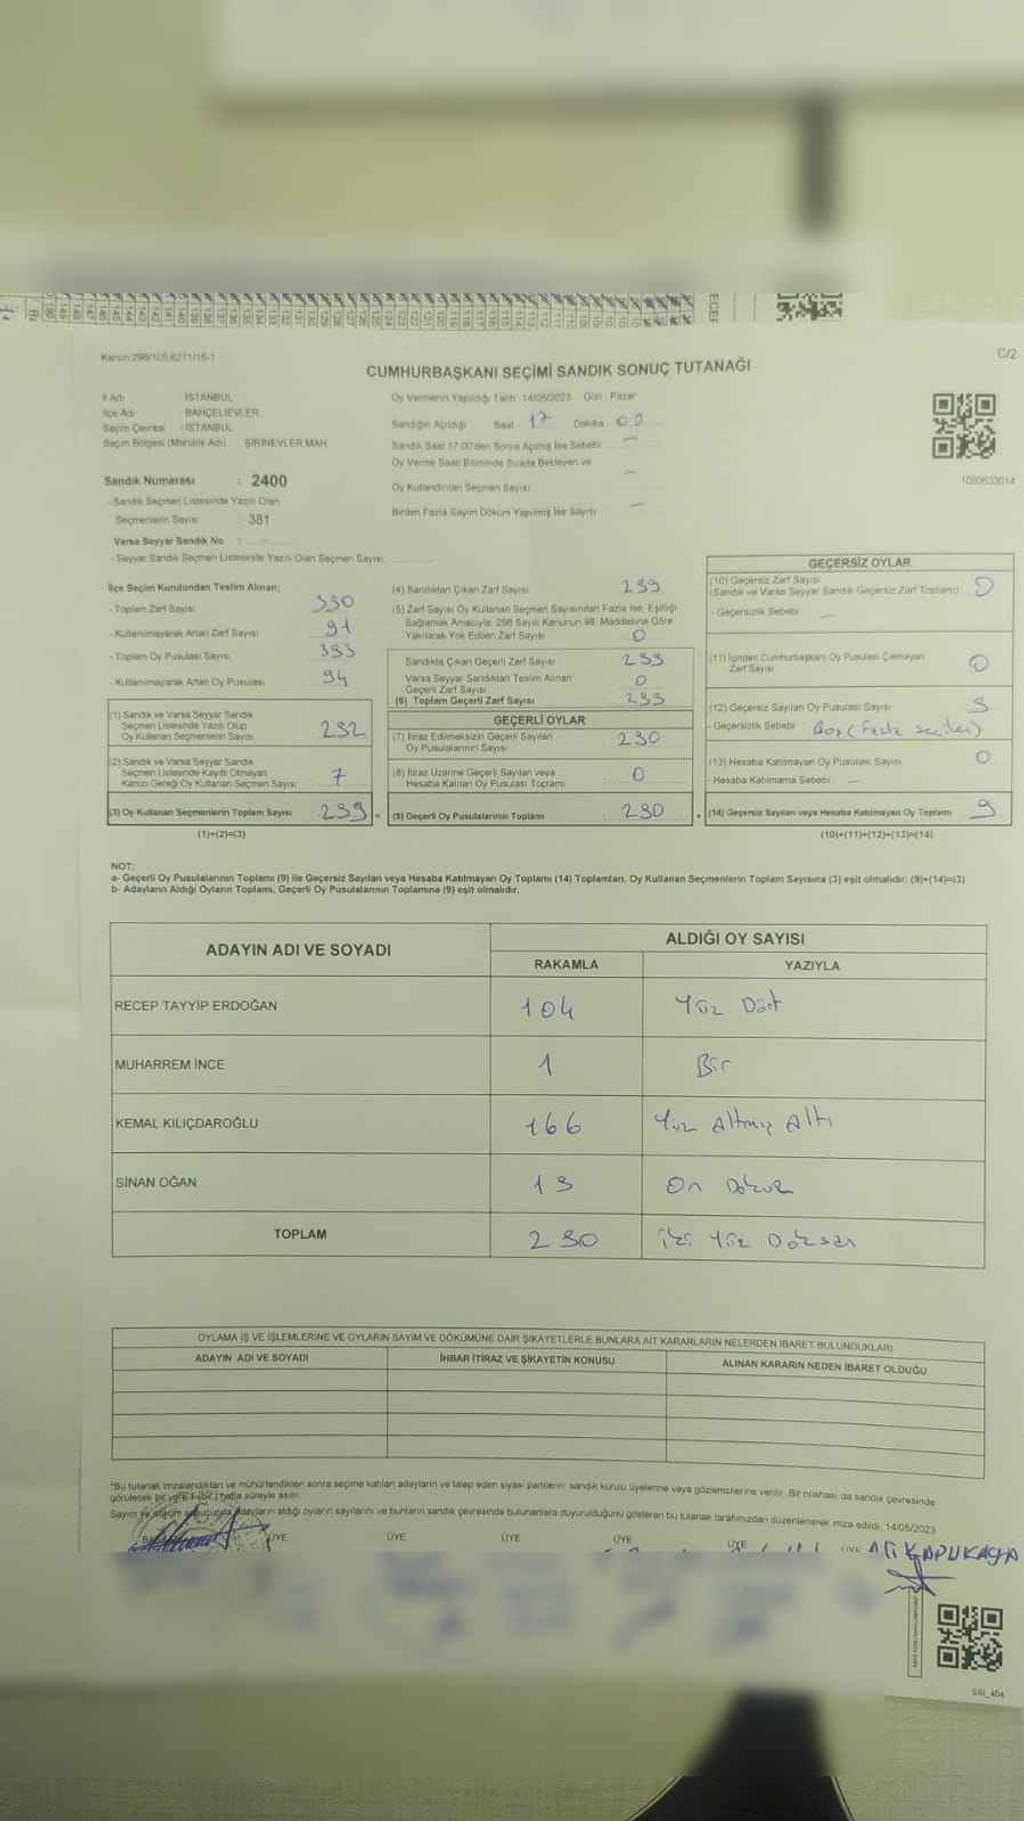 Kanun:298/105,6271/16-1
C/2
CUMHURBAŞKANI SEÇİMİ SANDIK SONUÇ TUTANAĞI
İl Adı : İSTANBUL
İlçe Adı : BAHÇELİEVLER
Seçim Çevresi : İSTANBUL
Seçim Bölgesi (Mahalle Adı) : ŞİRİNEVLER MAH.
Sandık Numarası : 2400
- Sandık Seçmen Listesinde Yazılı Olan
Seçmenlerin Sayısı : 381
Varsa Seyyar Sandık No :
- Seyyar Sandık Seçmen Listesinde Yazılı Olan Seçmen Sayısı
Oy Vermenin Yapıldığı Tarih : 14/05/2023 Gün : Pazar
Sandığın Açıldığı Saat 17 Dakika 00
Sandık Saat 17:00'den Sonra Açılmış İse Sebebi —
Oy Verme Saati Bitiminde Sırada Bekleyen ve
Oy Kullandırılan Seçmen Sayısı —
Birden Fazla Sayım Döküm Yapılmış İse Sayısı —
İlçe Seçim Kurulundan Teslim Alınan;
- Toplam Zarf Sayısı 390
- Kullanılmayarak Artan Zarf Sayısı 91
- Toplam Oy Pusulası Sayısı 393
- Kullanılmayarak Artan Oy Pusulası 94
(1) Sandık ve Varsa Seyyar Sandık
Seçmen Listesinde Yazılı Olup
Oy Kullanan Seçmenlerin Sayısı 292
(2) Sandık ve Varsa Seyyar Sandık
Seçmen Listesinde Kayıtlı Olmayan
Kanun Gereği Oy Kullanan Seçmen Sayısı 7
(3) Oy Kullanan Seçmenlerin Toplam Sayısı 299 =
(1)+(2)=(3)
(4) Sandıktan Çıkan Zarf Sayısı 299
(5) Zarf Sayısı Oy Kullanan Seçmen Sayısından Fazla İse, Eşitliği
Sağlamak Amacıyla, 298 Sayılı Kanunun 98. Maddesine Göre
Yakılarak Yok Edilen Zarf Sayısı 0
Sandıkta Çıkan Geçerli Zarf Sayısı 299
Varsa Seyyar Sandıktan Teslim Alınan
Geçerli Zarf Sayısı 0
(6) Toplam Geçerli Zarf Sayısı 299
GEÇERLİ OYLAR
(7) İtiraz Edilmeksizin Geçerli Sayılan
Oy Pusulalarının Sayısı 290
(8) İtiraz Üzerine Geçerli Sayılan veya
Hesaba Katılan Oy Pusulası Toplamı 0
(9) Geçerli Oy Pusulalarının Toplamı 290 +
1090633014
GEÇERSİZ OYLAR
(10) Geçersiz Zarf Sayısı
(Sandık ve Varsa Seyyar Sandık Geçersiz Zarf Toplamı) 0
- Geçersizlik Sebebi —
(11) İçinden Cumhurbaşkanı Oy Pusulası Çıkmayan
Zarf Sayısı 0
(12) Geçersiz Sayılan Oy Pusulası Sayısı 9
- Geçersizlik Sebebi Boş (Fazla seçilen)
(13) Hesaba Katılmayan Oy Pusulası Sayısı 0
- Hesaba Katılmama Sebebi —
(14) Geçersiz Sayılan veya Hesaba Katılmayan Oy Toplamı 9
(10)+(11)+(12)+(13)=(14)
NOT:
a- Geçerli Oy Pusulalarının Toplamı (9) ile Geçersiz Sayılan veya Hesaba Katılmayan Oy Toplamı (14) Toplamları, Oy Kullanan Seçmenlerin Toplam Sayısına (3) eşit olmalıdır. (9)+(14)=(3)
b- Adayların Aldığı Oyların Toplamı, Geçerli Oy Pusulalarının Toplamına (9) eşit olmalıdır.
ADAYIN ADI VE SOYADI
ALDIĞI OY SAYISI
RAKAMLA YAZIYLA
RECEP TAYYİP ERDOĞAN 104 Yüz Dört
MUHARREM İNCE 1 Bir
KEMAL KILIÇDAROĞLU 166 Yüz Altmış Altı
SİNAN OĞAN 19 On Dokuz
TOPLAM 290 İki Yüz Doksan
OYLAMA İŞ VE İŞLEMLERİNE VE OYLARIN SAYIM VE DÖKÜMÜNE DAİR ŞİKAYETLERLE BUNLARA AİT KARARLARIN NELERDEN İBARET BULUNDUKLARI
ADAYIN ADI VE SOYADI İHBAR İTİRAZ VE ŞİKAYETİN KONUSU ALINAN KARARIN NEDEN İBARET OLDUĞU
*Bu tutanak imzalandıktan ve mühürlendikten sonra seçime katılan adayların ve talep eden siyasi partilerin sandık kurulu üyelerine veya gözlemcilerine verilir. Bir nüshası da sandık çevresinde
görülecek bir yere 1 (bir) hafta süreyle asılır.
Sayım ve döküm sonucunda adayların aldığı oyların sayılarını ve bunların sandık çevresinde bulunanlara duyurulduğunu gösteren bu tutanak tarafımızdan düzenlenerek imza edildi. 14/05/2023
ÜYE ÜYE ÜYE ÜYE ÜYE ÜYE ALİ KAPUKAYA